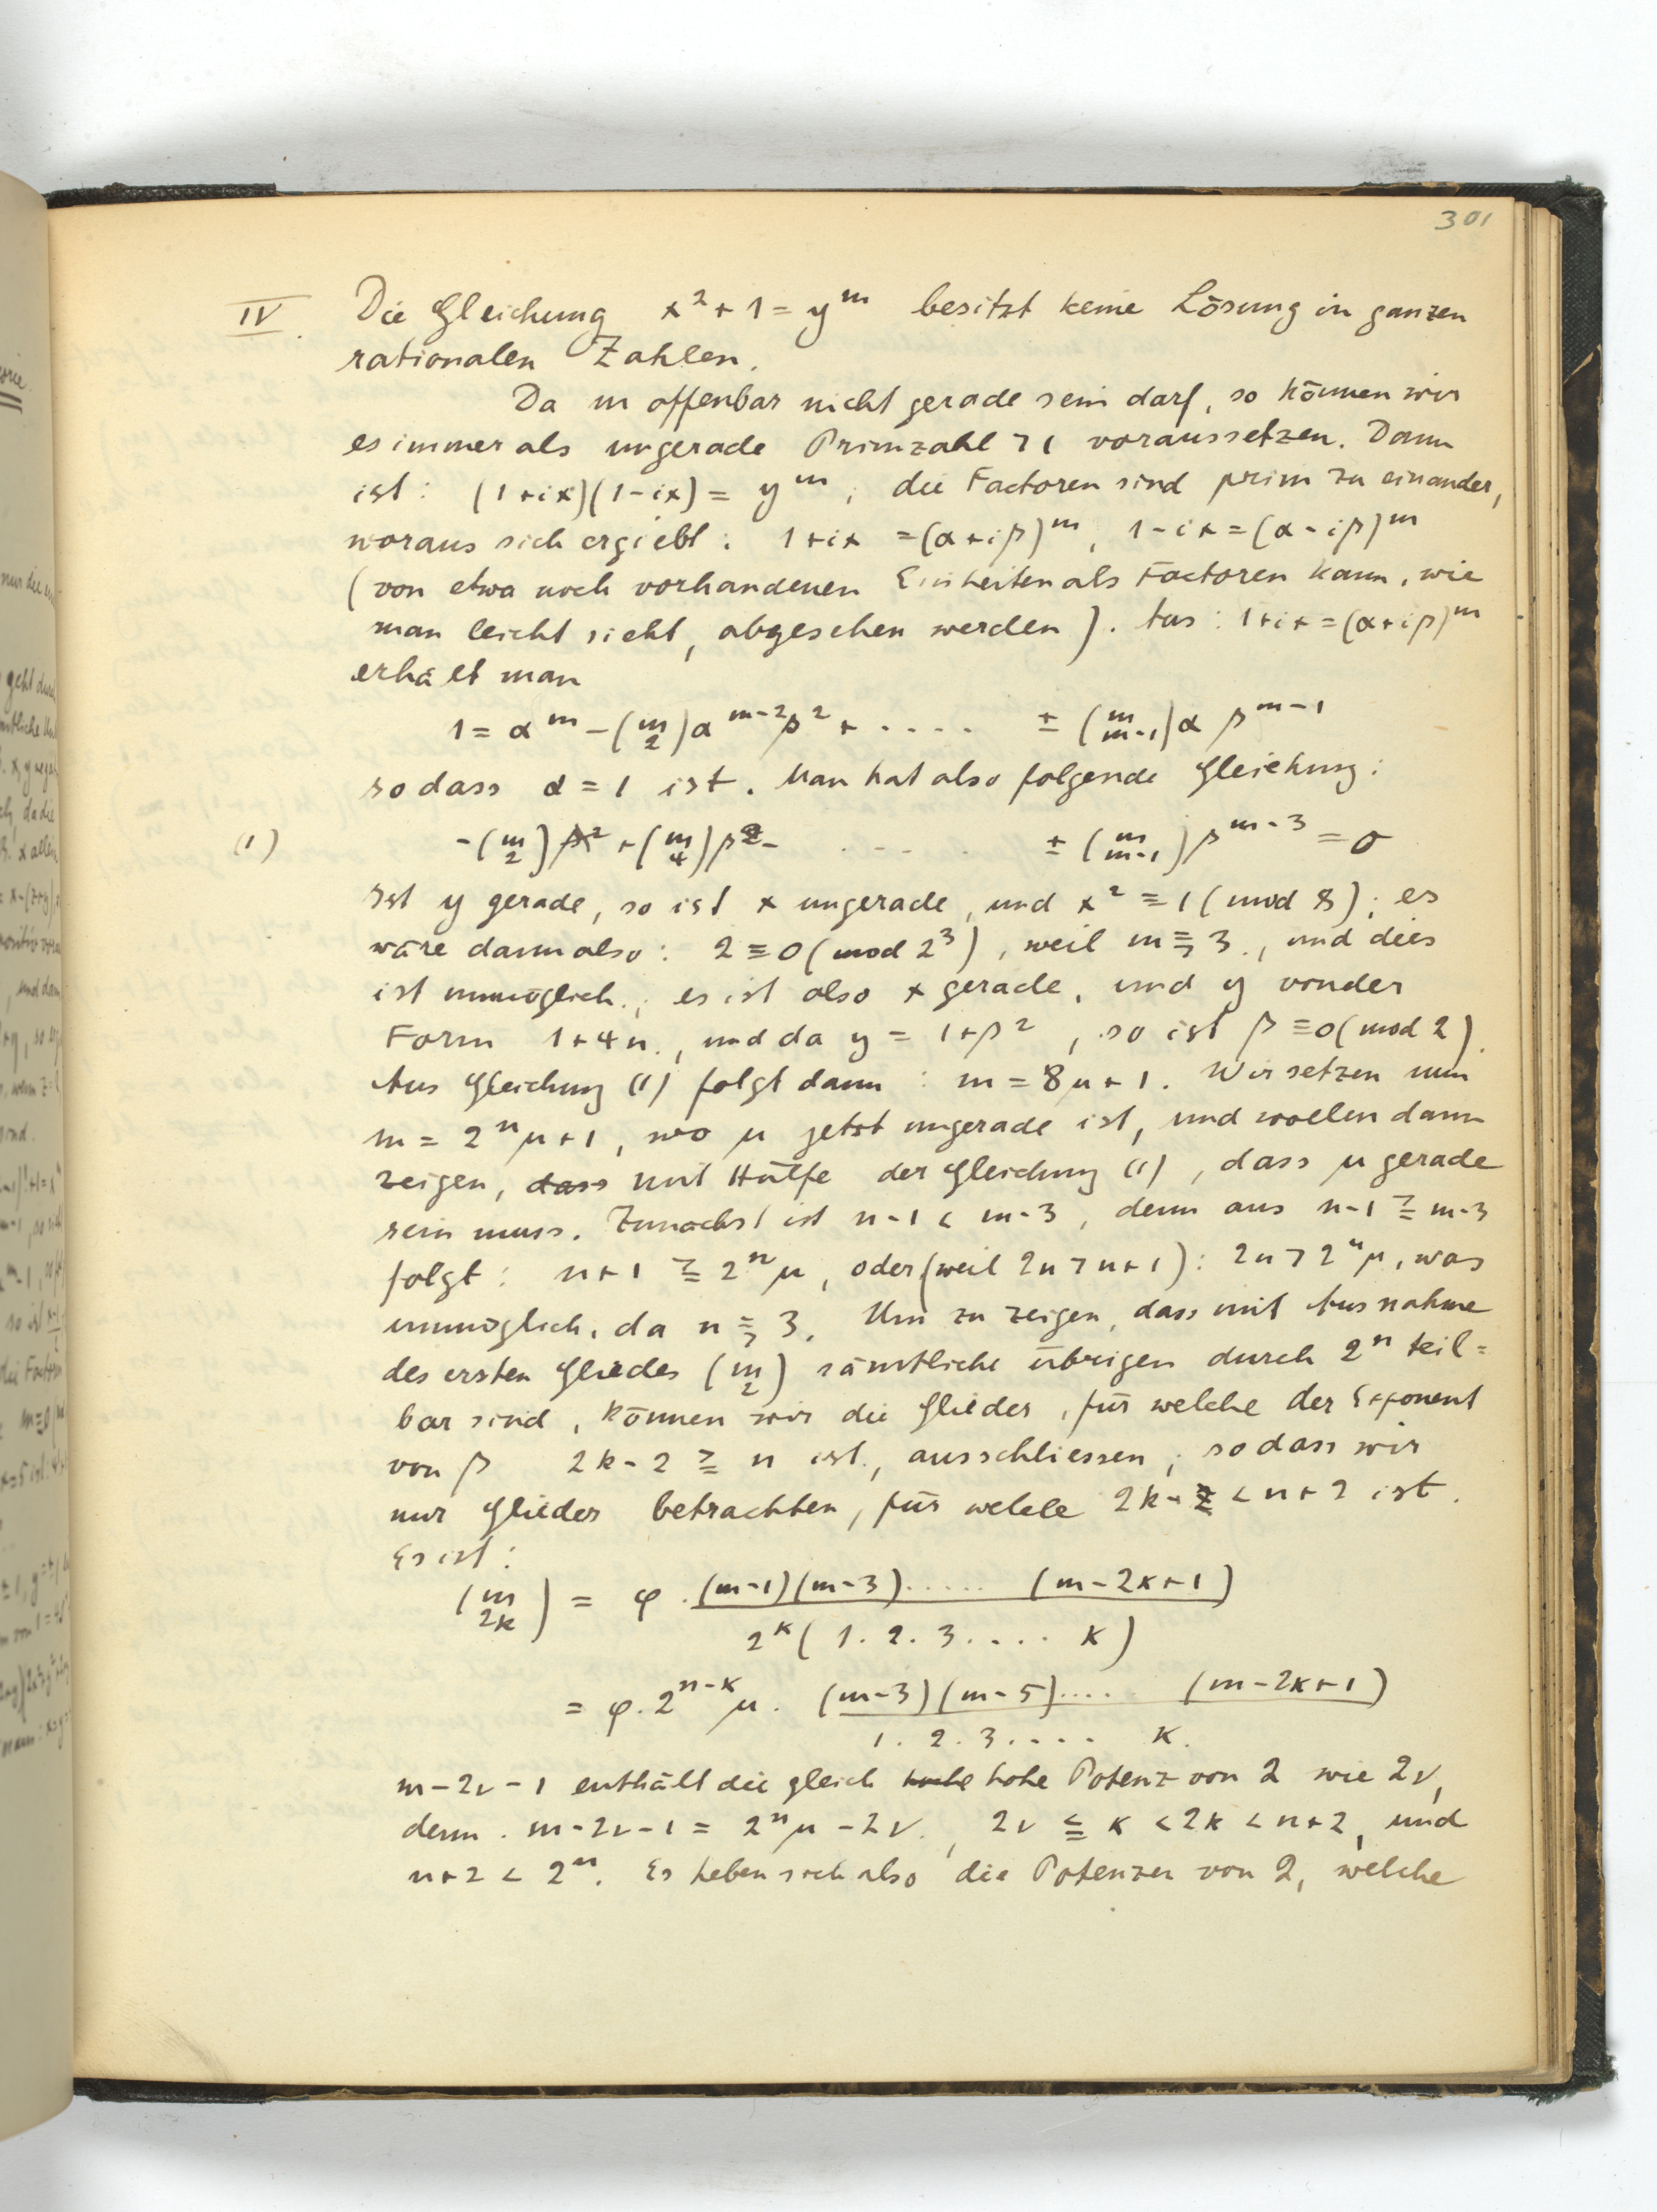 301
IV. Die Gleichung x² + 1 = yᵐ besitzt keine Lösung in ganzen
rationalen Zahlen.
Da m offenbar nicht gerade sein darf, so können wir
es immer als ungerade Primzahl > 1 voraussetzen. Dann
ist: (1+ix)(1-ix) = yᵐ, die Factoren sind prim zu einander,
woraus sich ergiebt: 1+ix = (α+iβ)ᵐ, 1-ix = (α-iβ)ᵐ
(von etwa noch vorhandenen Einheiten als Factoren kann, wie
man leicht sieht, abgesehen werden). Aus: 1+ix = (α+iβ)ᵐ
erhält man
1 = αᵐ - (m 2) αᵐ⁻²β² + ..... ± (m m-1) α βᵐ⁻¹
so dass α = 1 ist. Man hat also folgende Gleichung:
(1) -(m 2) β² + (m 4) β² - ..... ± (m m-1) βᵐ⁻³ = 0
Ist y gerade, so ist x ungerade, und x² ≡ 1 (mod 8); es
wäre dann also: 2 ≡ 0 (mod 2³), weil m ≧ 3, und dies
ist unmöglich; es ist also x gerade, und y von der
Form 1+4n, und da y = 1+β², so ist β ≡ 0 (mod 2).
Aus Gleichung (1) folgt dann: m = 8μ+1. Wir setzen nun
m = 2ⁿμ+1, wo μ jetzt ungerade ist, und wollen dann
zeigen, dass mit Hülfe der Gleichung (1), dass μ gerade
sein muss. Zunächst ist n-1 < m-3, denn aus n-1 ≧ m-3
folgt: n+1 ≧ 2ⁿμ, oder (weil 2n > n+1): 2n > 2ⁿμ, was
unmöglich, da n ≧ 3. Um zu zeigen, dass mit Ausnahme
des ersten Gliedes (m 2) sämtliche übrigen durch 2ⁿ teil=
bar sind, können wir die Glieder, für welche der Exponent
von β 2k-2 ≧ n ist, ausschliessen, so dass wir
nur Glieder betrachten, für welche 2k < n+2 ist.
Es ist:
(m 2k) = φ . (m-1)(m-3)...... (m-2k+1)
2ᵏ (1. 2. 3. .... k)
= φ. 2ⁿ⁻ᵏ μ. (m-3)(m-5).... (m-2k+1)
1. 2. 3. .... k.
m-2ν-1 enthält die gleich hohe Potenz von 2 wie 2ν,
denn. m-2ν-1 = 2ⁿμ-2ν, 2ν ≦ k < 2k < n+2, und
n+2 < 2ⁿ. Es heben sich also die Potenzen von 2, welche